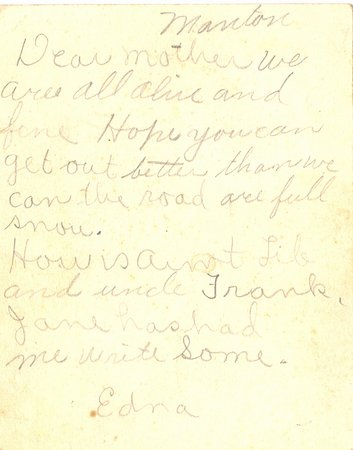 Manton
Dear mother we
aree all alive and
fine Hope you can
get out better than we
can the road are full
snow.
How is aunt Lib
and uncle Frank.
Jane has had
me write Some.
Edna